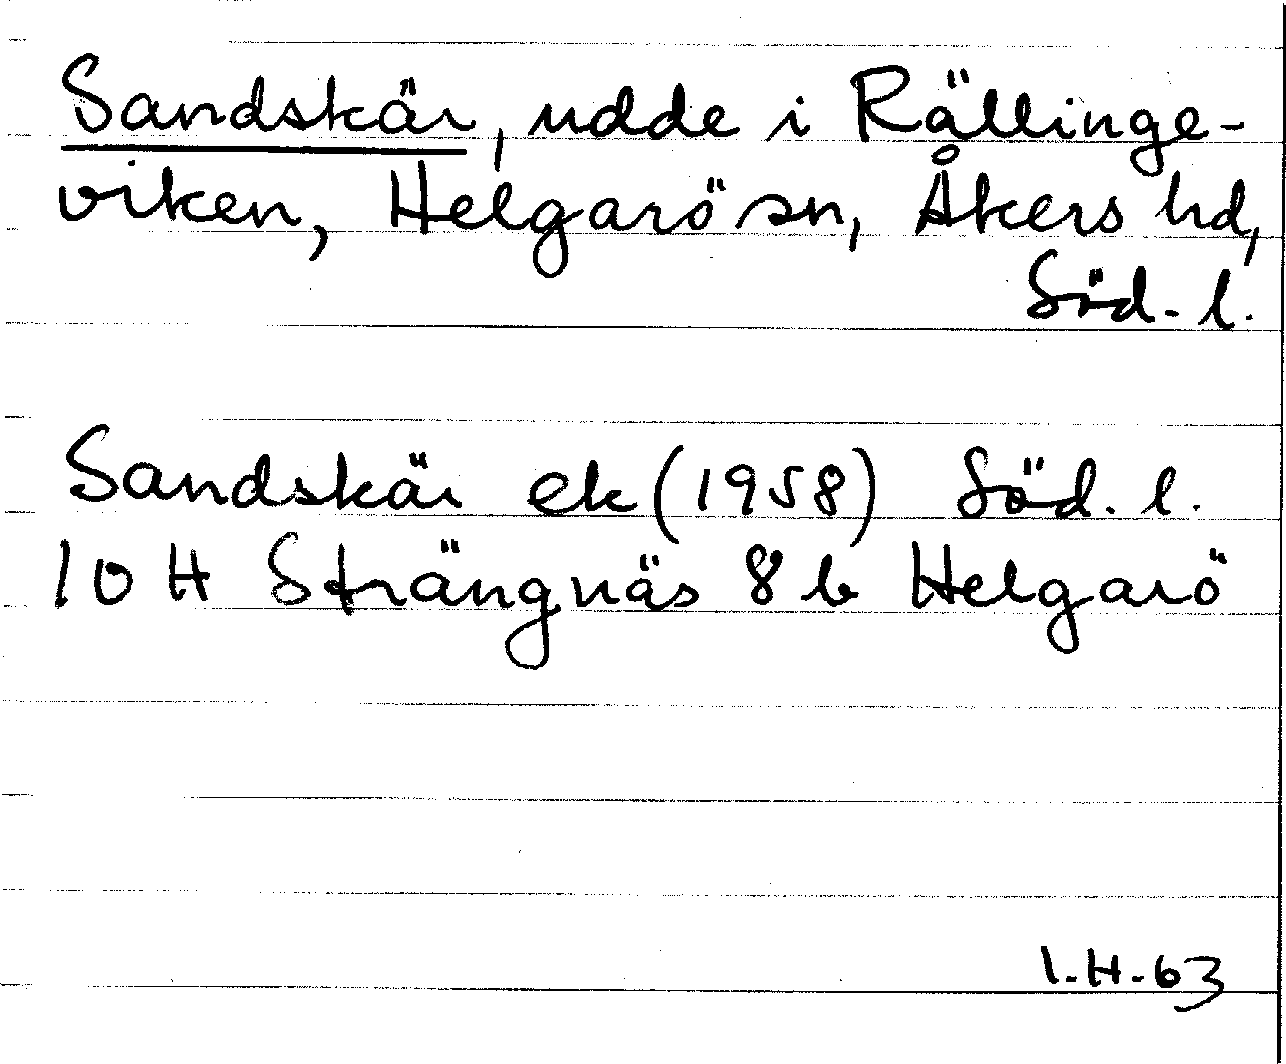 Sandskär, udde i Rällinge-
viken, Helgarö sn, Åkers hd,
Söd. l.
Sandskär ek (1958) Söd. l.
10 H Strängnäs 8 b Helgarö
I.H.63